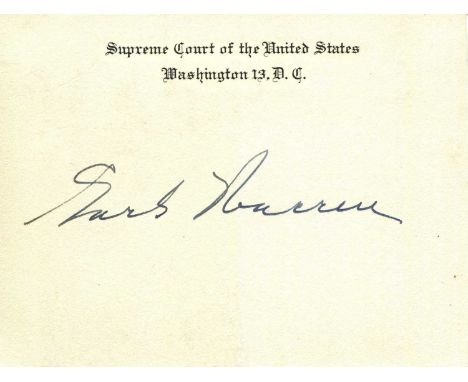 Supreme Court of the United States
Washington 13, D. C.
Earl Warren